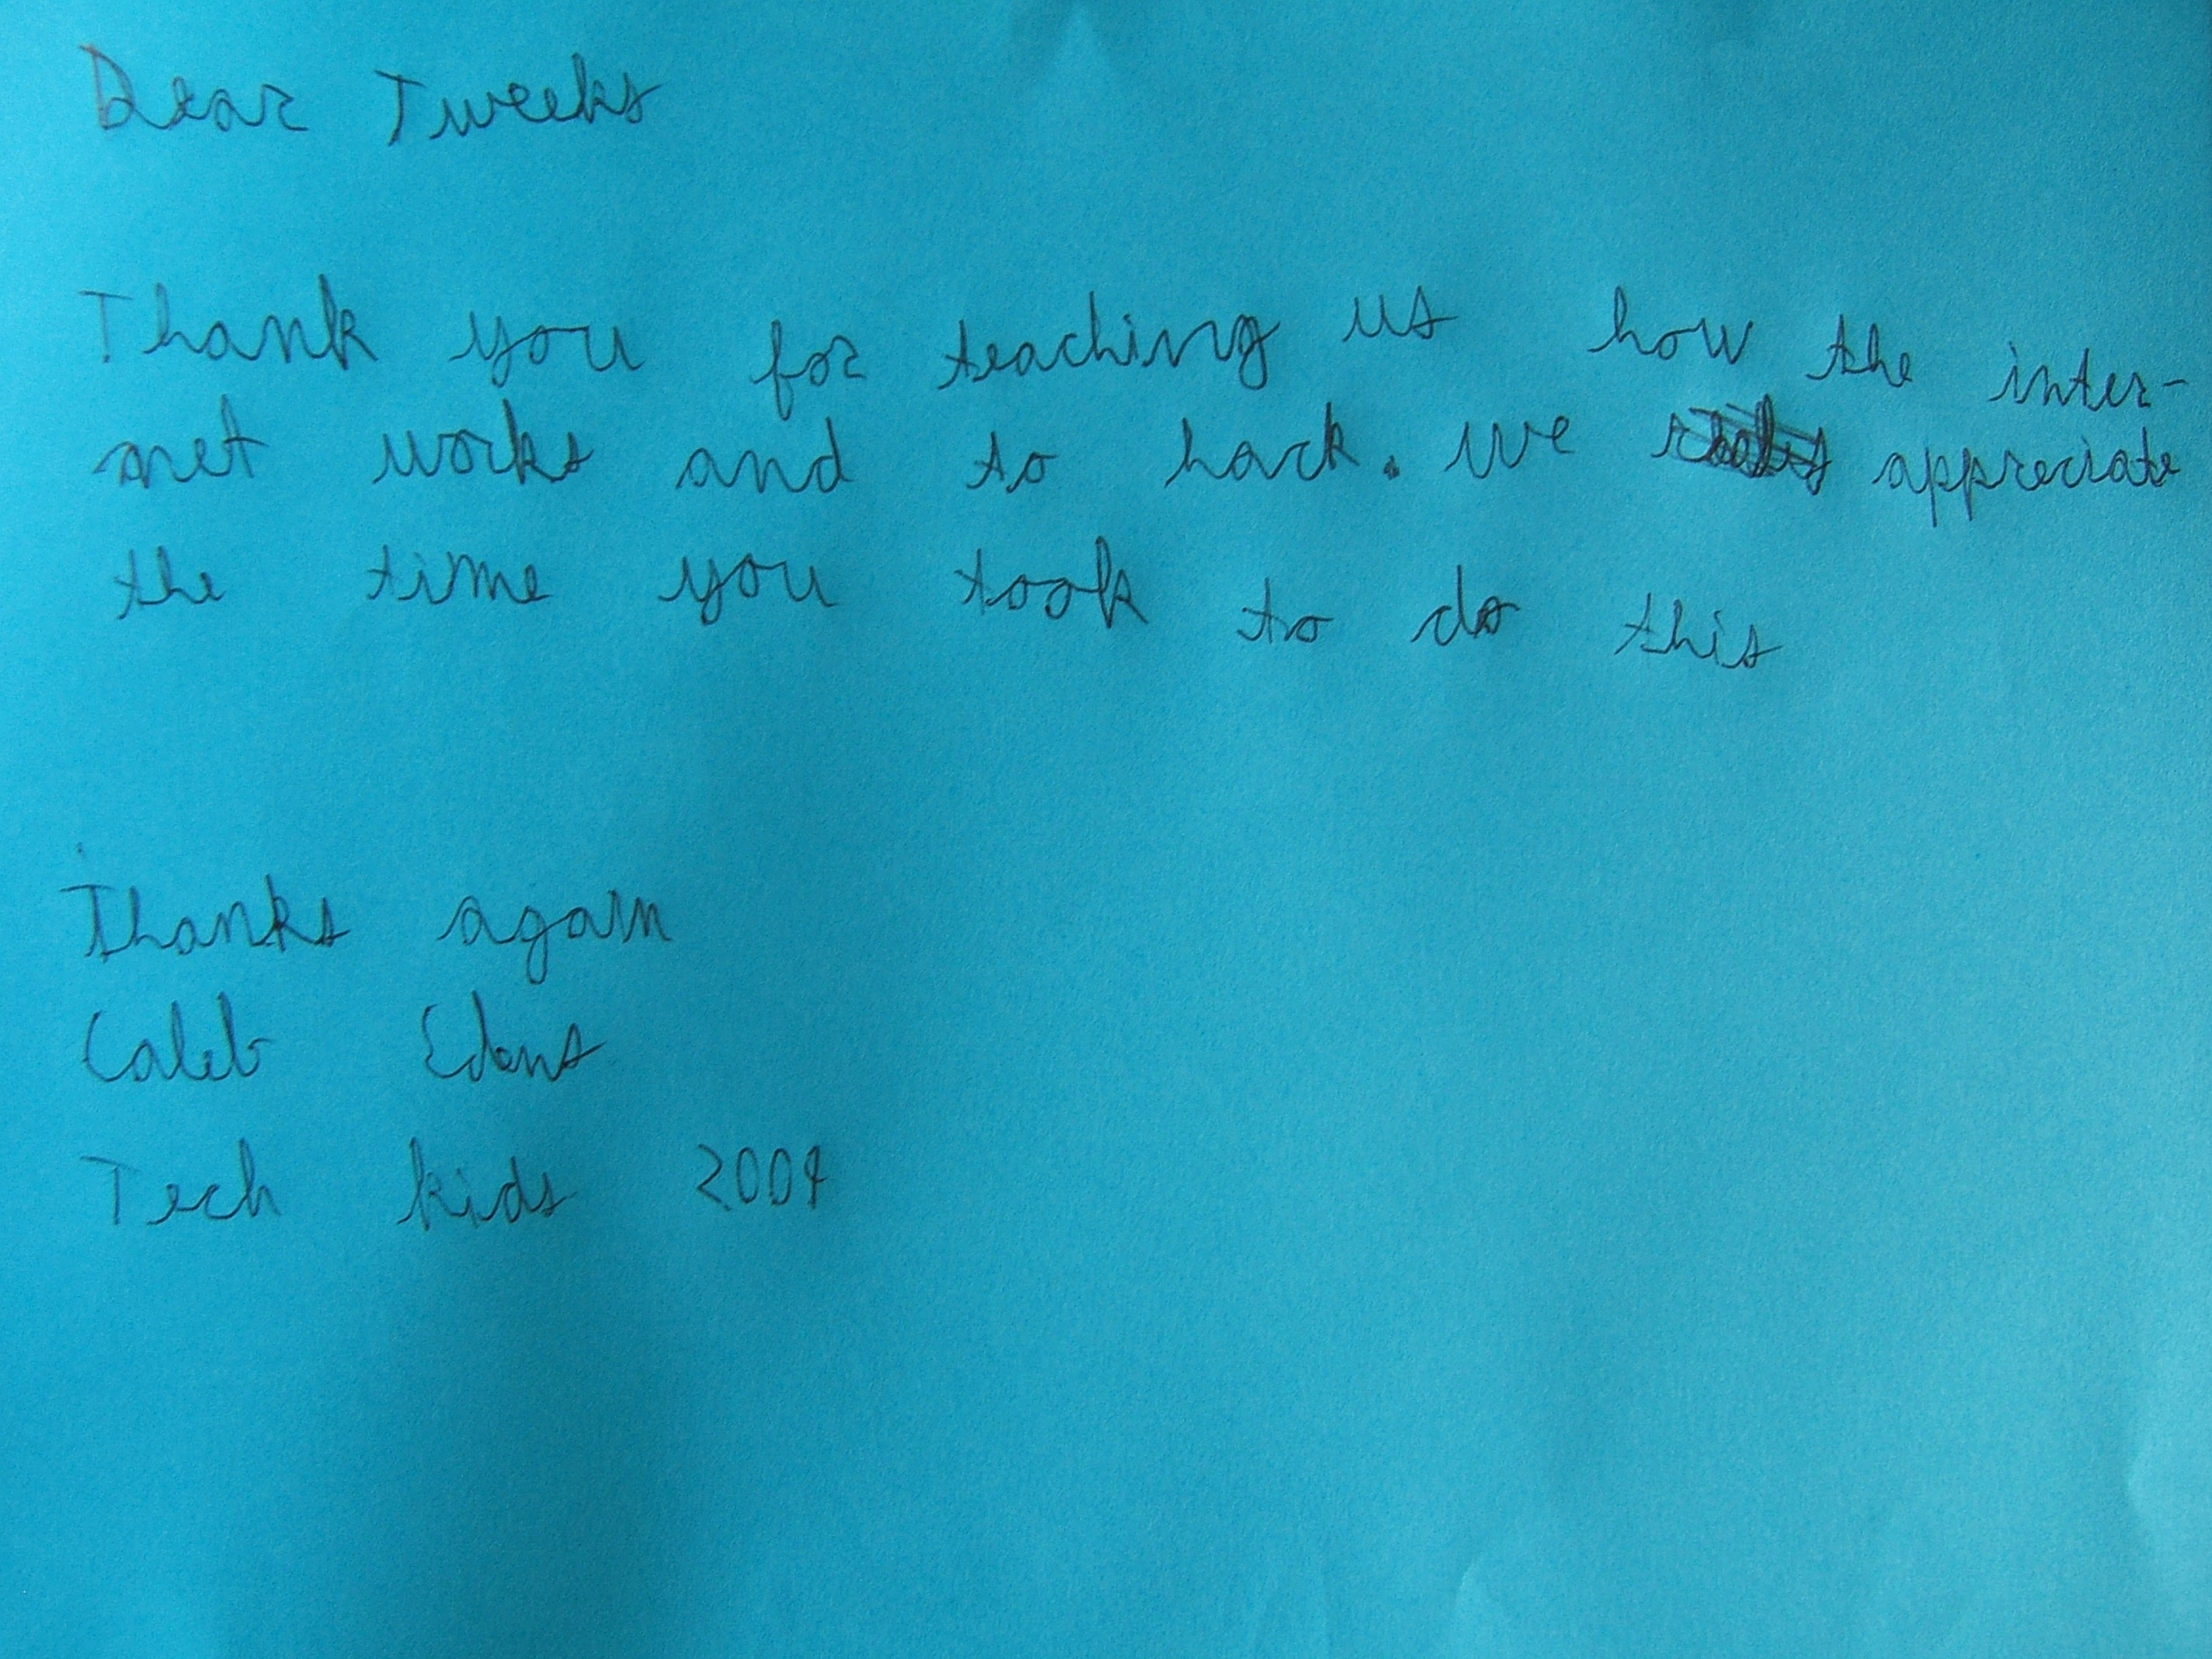 Dear Tweeks
Thank you for teaching us how the inter-
net works and to hack. We appreciate
the time you took to do this
Thanks again
Caleb Edens
Tech kids 2004